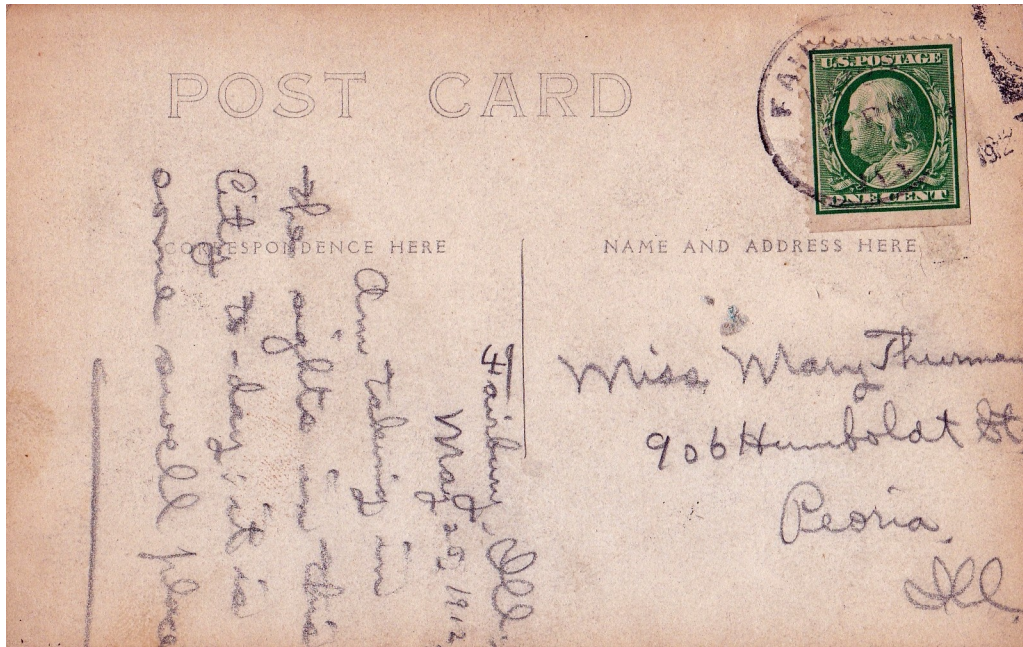 POST CARD
U.S. POSTAGE
ONE CENT
1912
CORRESPONDENCE HERE
NAME AND ADDRESS HERE
Fairbury, Ill.
May 25, 1912
Am taking in
the sights in this
city to-day; it is
some swell place
Miss Mary Thurman
906 Humboldt St
Peoria,
Ill.